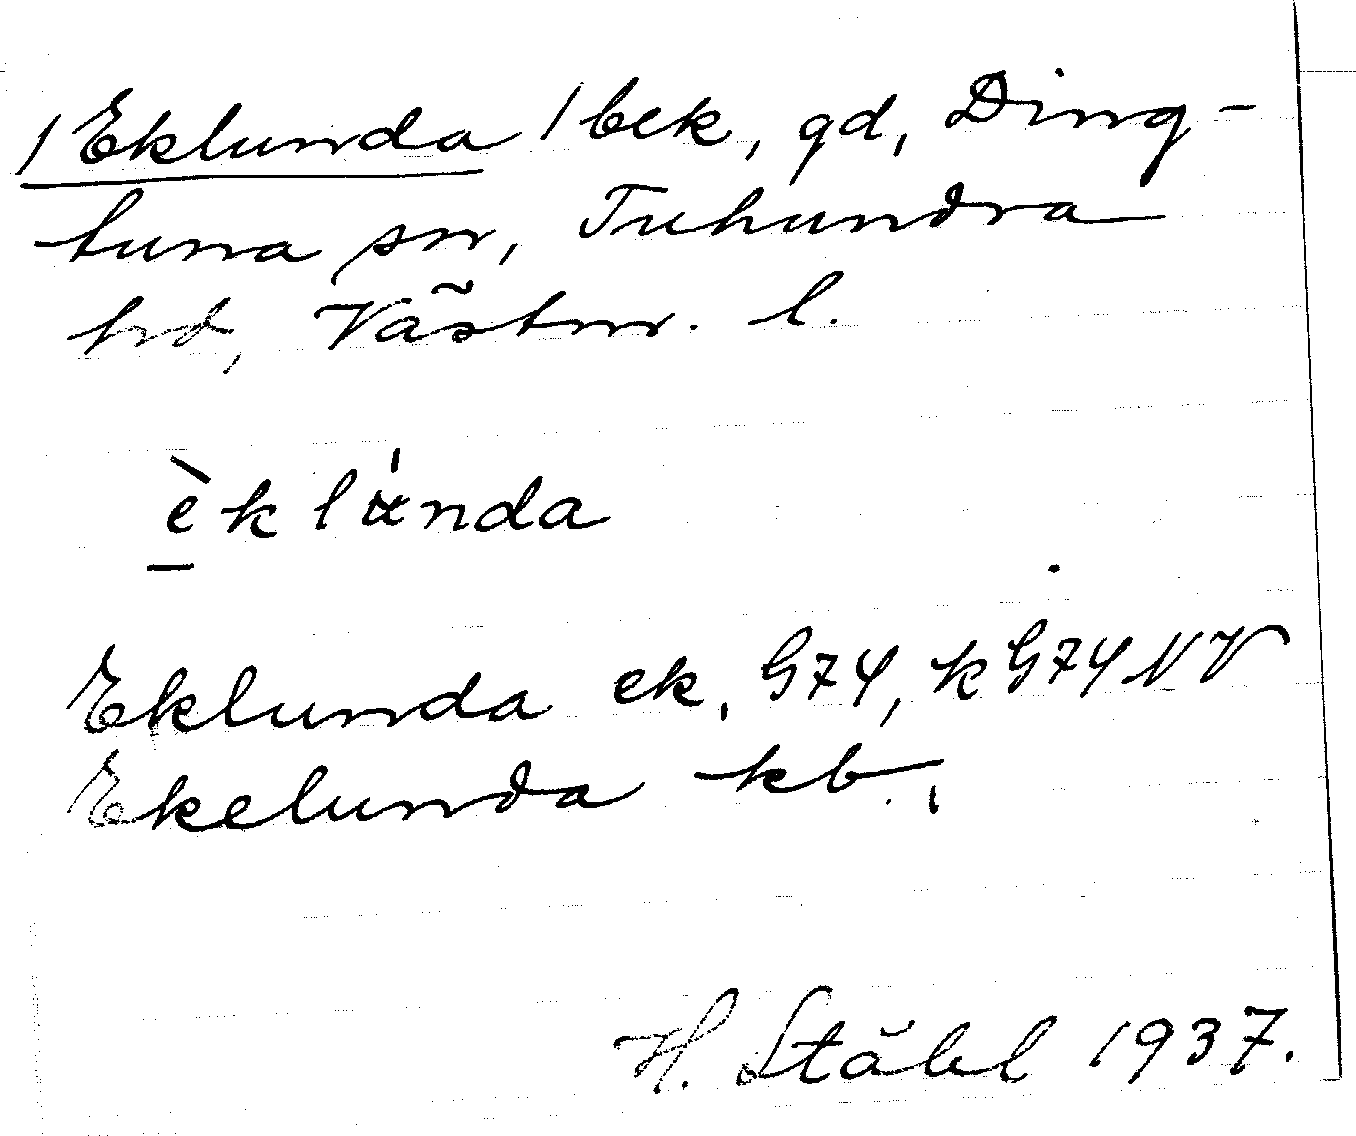 /Eklunda /bek, gd, Ding-
tuna sn, Tuhundra
hd, Västm. l.
èklu̍nda
Eklunda ek, G74, kG74NV
Ekelunda kb,
H. Ståhl 1937.